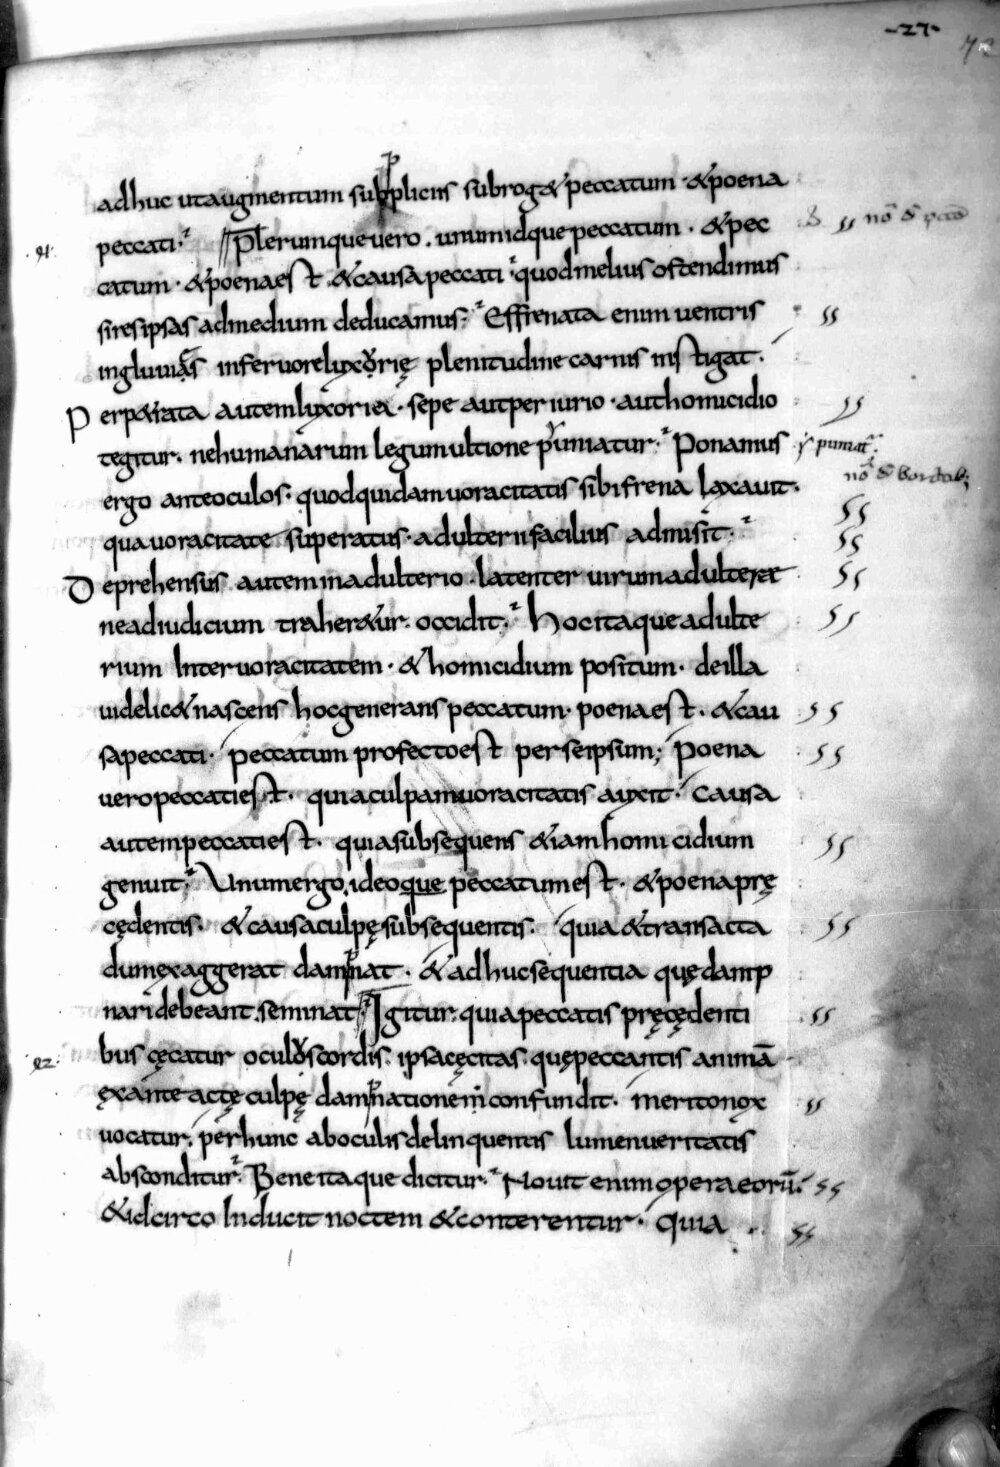 -27-
adhuc ut augmentum subplicus subrog& peccatum · & poena
peccati · Plerumque vero . unum idque peccatum · & pec
91
catum · & poena est . & causa peccati · quod melius ostendimus
si res ipsas ad medium deducamus · Effrenata enim uentris
ingluuias in feruore luxorię plenitudine carnis instigat .
Perp&rata autem luxoria · sepe aut periurio · aut homicidio
tegitur . ne humanarum legum ultione puniatur · Ponamus
ergo ante oculos · quod quidam uoracitatis sibi frena laxauit .
qua uoracitate superatus · adulterii facilius admisit ·
Deprehensus autem in adulterio · latenter uirum adulteret
ne ad iudicium traher&ur . occidit · Hoc itaque adulte
rium Inter uoracitatem · & homicidium positum · de illa
uidelic& nascens hoc generans peccatum · poena est . & cau
sa peccati · peccatum profecto est per se ipsum ; Poena
uero peccati est . quia culpam uoracitatis auxit · Causa
autem peccati est . quia subsequens &iam homicidium
genuit · Unum ergo . ideoque peccatum est . & poena prę
cędentis . & causa culpę subsequentis . quia & transacta
dum exaggerat damnat . & adhuc sequentia quę damp
nari debeant . seminat · Igitur . quia peccatis pręcędenti
bus cęcatur oculos cordis . ipsa cęcitas . quę peccantis animā
92
ęx ante actę culpę damnationem confundit . merito nox
uocatur . per hunc ab oculis delinquentis lumen ueritatis
absconditur · Bene itaque dicitur · Nouit enim opera eorū .
& idcirco Inducit noctem & conterentur · Quia